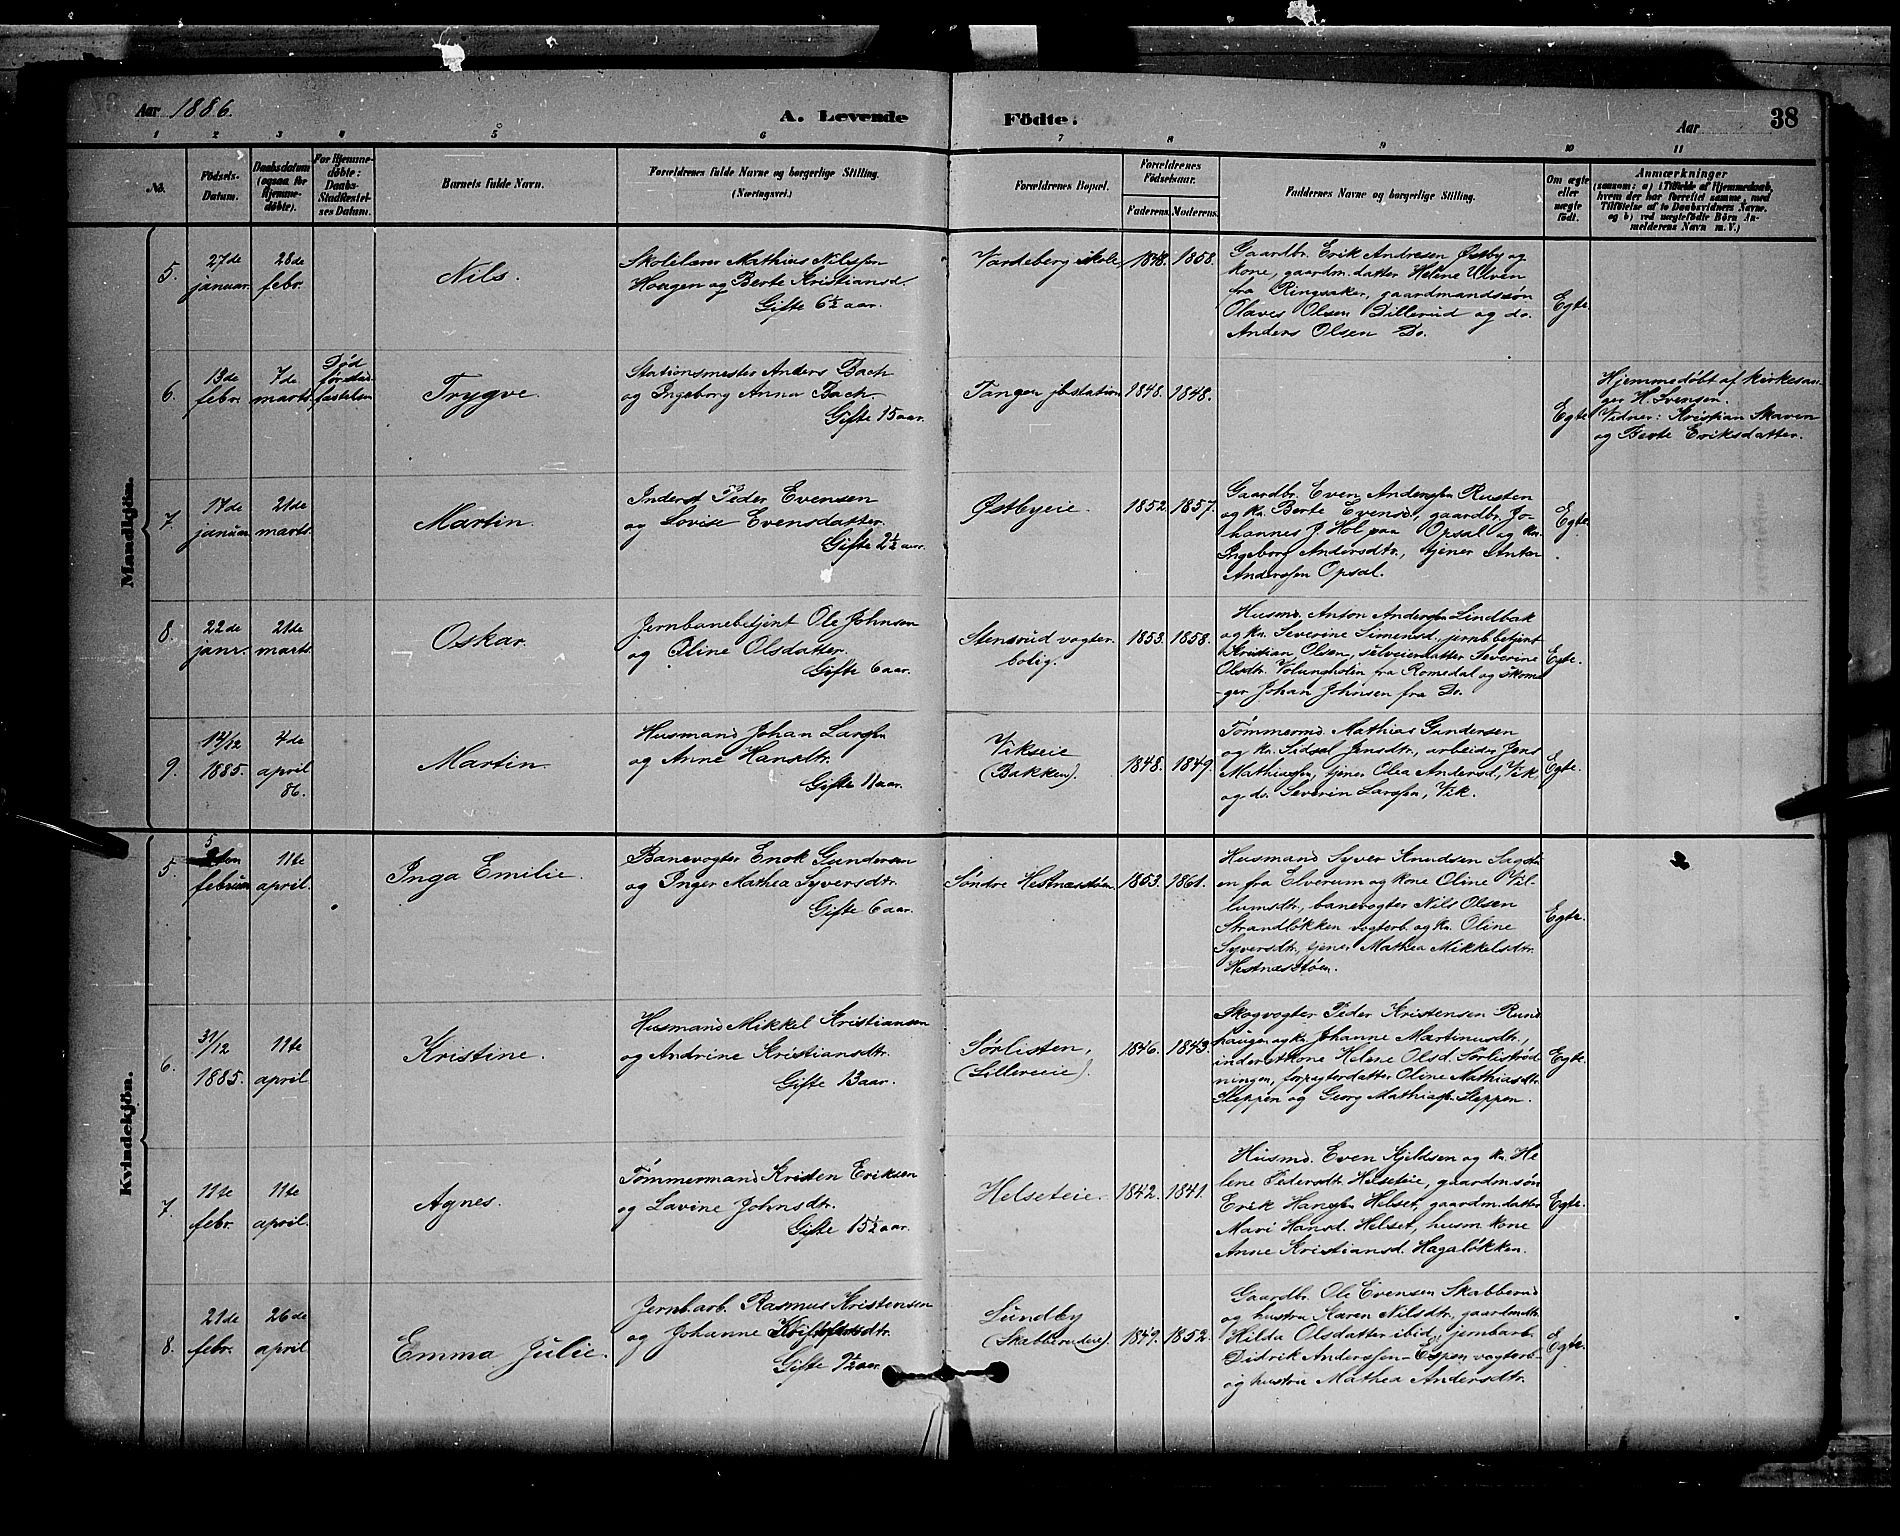 Aar 1886.
A. Levende
Födte.
Aar
38
1 2 3 4 5 6 7 8 9 10 11
No.
Födsels-
Datum.
Daabsdatum
(ogsaa for
Hjemme-
döbte).
For Hjemme-
döbte:
Daabs-
Stadfæstel-
ses Datum.
Barnets fulde Navn.
Forældrenes fulde Navne og borgerlige Stilling.
(Næringsvei.)
Forældrenes Bopæl.
Forældrenes
Födselsaar.
Faderens. Moderens.
Faddernes Navne og borgerlige Stilling.
Om ægte
eller
uægte
födt.
Anmærkninger
(saasom: a) i Tilfælde af Hjemmedaab,
hvem der har forrettet samme, med
Tilföielse af to Daabsvidners Navne,
og b) ved uægtefödte Börn An-
melderens Navn m. V.)
Mandkjön.
5.
27de
januar.
28de
febr.
Nils.
Skolelærer Mathias Nilssen
Hougen og Berte Kristiansd.
Gifte 6½ aar.
Vardeberg skole
1848. 1858.
Gaardbr. Erik Andresen Østby og
kone, gaardm.datter Helene Ulven
fra Ringsaker, gaardmandssøn
Olaves Olsen Dillerud og do.
Anders Olsen Do.
Egte.
6.
13de
febr.
7de
marts.
Død
før stad-
fæstelsen
Trygve.
Stationsmester Anders Bach
og Ingeborg Anna Bach.
Gifte 15 aar.
Tangen jb.station
1848. 1848.
Egte
Hjemmedøbt af kirkesan-
ger H. Svensen.
Vidner: Kristian Skaven
og Berte Eriksdatter.
7.
17de
januar.
21de
marts.
Martin.
Inderst Peder Evensen
og Lovise Evensdatter.
Gifte 2½ aar.
Østbyeie.
1852. 1857.
Gaardbr. Even Anderssen Rusten
og ko. Berte Evensd., gaardbr. Jo-
hannes J. Hol paa Opsal og ko.
Ingeborg Andersdtr., tjener Anton
Anderssen Opsal.
Egte.
8.
22de
janr.
21de
marts.
Oskar.
Jernbanebetjent Ole Johnsen
og Oline Olsdatter.
Gifte 6 aar.
Stensrud vogter-
bolig.
1853. 1858.
Husmd. Anton Anderssen Lindbak
og ko. Severine Simensd., jernb.betjent
Kristian Olsen, selveierdatter Severine
Olsdtr. Volungholen fra Romedal og skoma-
ger Johan Johnsen fra Do.
Egte.
9.
14/12
1885.
4de
april
86.
Martin.
Husmand Johan Larssen
og Anne Hansdtr.
Gifte 11 aar.
Vikseie
(Bakken).
1848. 1849.
Tømmermd. Mathias Gundersen
og ko. Sidsel Jensdtr., arbeider Jens
Mathiassen, tjener Olea Andersd, Vik,
og do. Severin Larssen, Vik.
Egte.
Kvindekjön.
5.
5
februar
11te
april.
Inga Emilie.
Banevogter Enok Gundersen
og Inger Mathea Syversdtr.
Gifte 6 aar.
Søndre Hestnæstøen
1853. 1861.
Husmand Syver Knudsen Sagstu-
en fra Elverum og kone Oline Vil-
lumsdtr., banevogter Nils Olsen
Strandløkken vogterb. og ko. Oline
Syversdtr., tjener Mathea Mikkelsdtr.
Hestnæstøen.
Egte.
6.
31/12
1885.
11te
april
Kristine.
Husmand Mikkel Kristiansen
og Andrine Kristiansdtr.
Gifte 13 aar.
Sørlisten,
(Lillereeie).
1846. 1843.
Skogvogter Peder Kristensen Rund-
haugen og ko. Johanne Martinusdtr.,
inderstkone Helene Olsd. Sørlistrød-
ningen, forpagterdatter Oline Mathiasdtr.
Steppen og Georg Mathiass. Steppen.
Egte.
7.
11te
febr.
11te
april.
Agnes.
Tømmermand Kristen Eriksen
og Lavine Johnsdtr.
Gifte 15½ aar.
Helseteie.
1842. 1841.
Husmd. Even Kjeldsen og ko. He-
lene Pedersdtr. Helseteie, gaardm.søn
Erik Hanssen Helset, gaardm.datter
Mari Hansd. Helset, husm.kone
Anne Kristiansd. Hagaløkken.
Egte.
8.
21de
febr.
26de
april
Emma Julie.
Jernb.arb. Rasmus Kristensen
og Johanne Kristofersdtr.
Gifte 9½ aar.
Sundby
(Skabberudeie).
1849. 1852.
Gaardbr. Ole Evensen Skabberud
og hustru Karen Nilsdtr., gaardm.dtr.
Hilda Olsdatter ibid., jernbarb.
Didrik Anderssen Espen vogterb.
og hustru Mathea Andersdtr.
Egte.